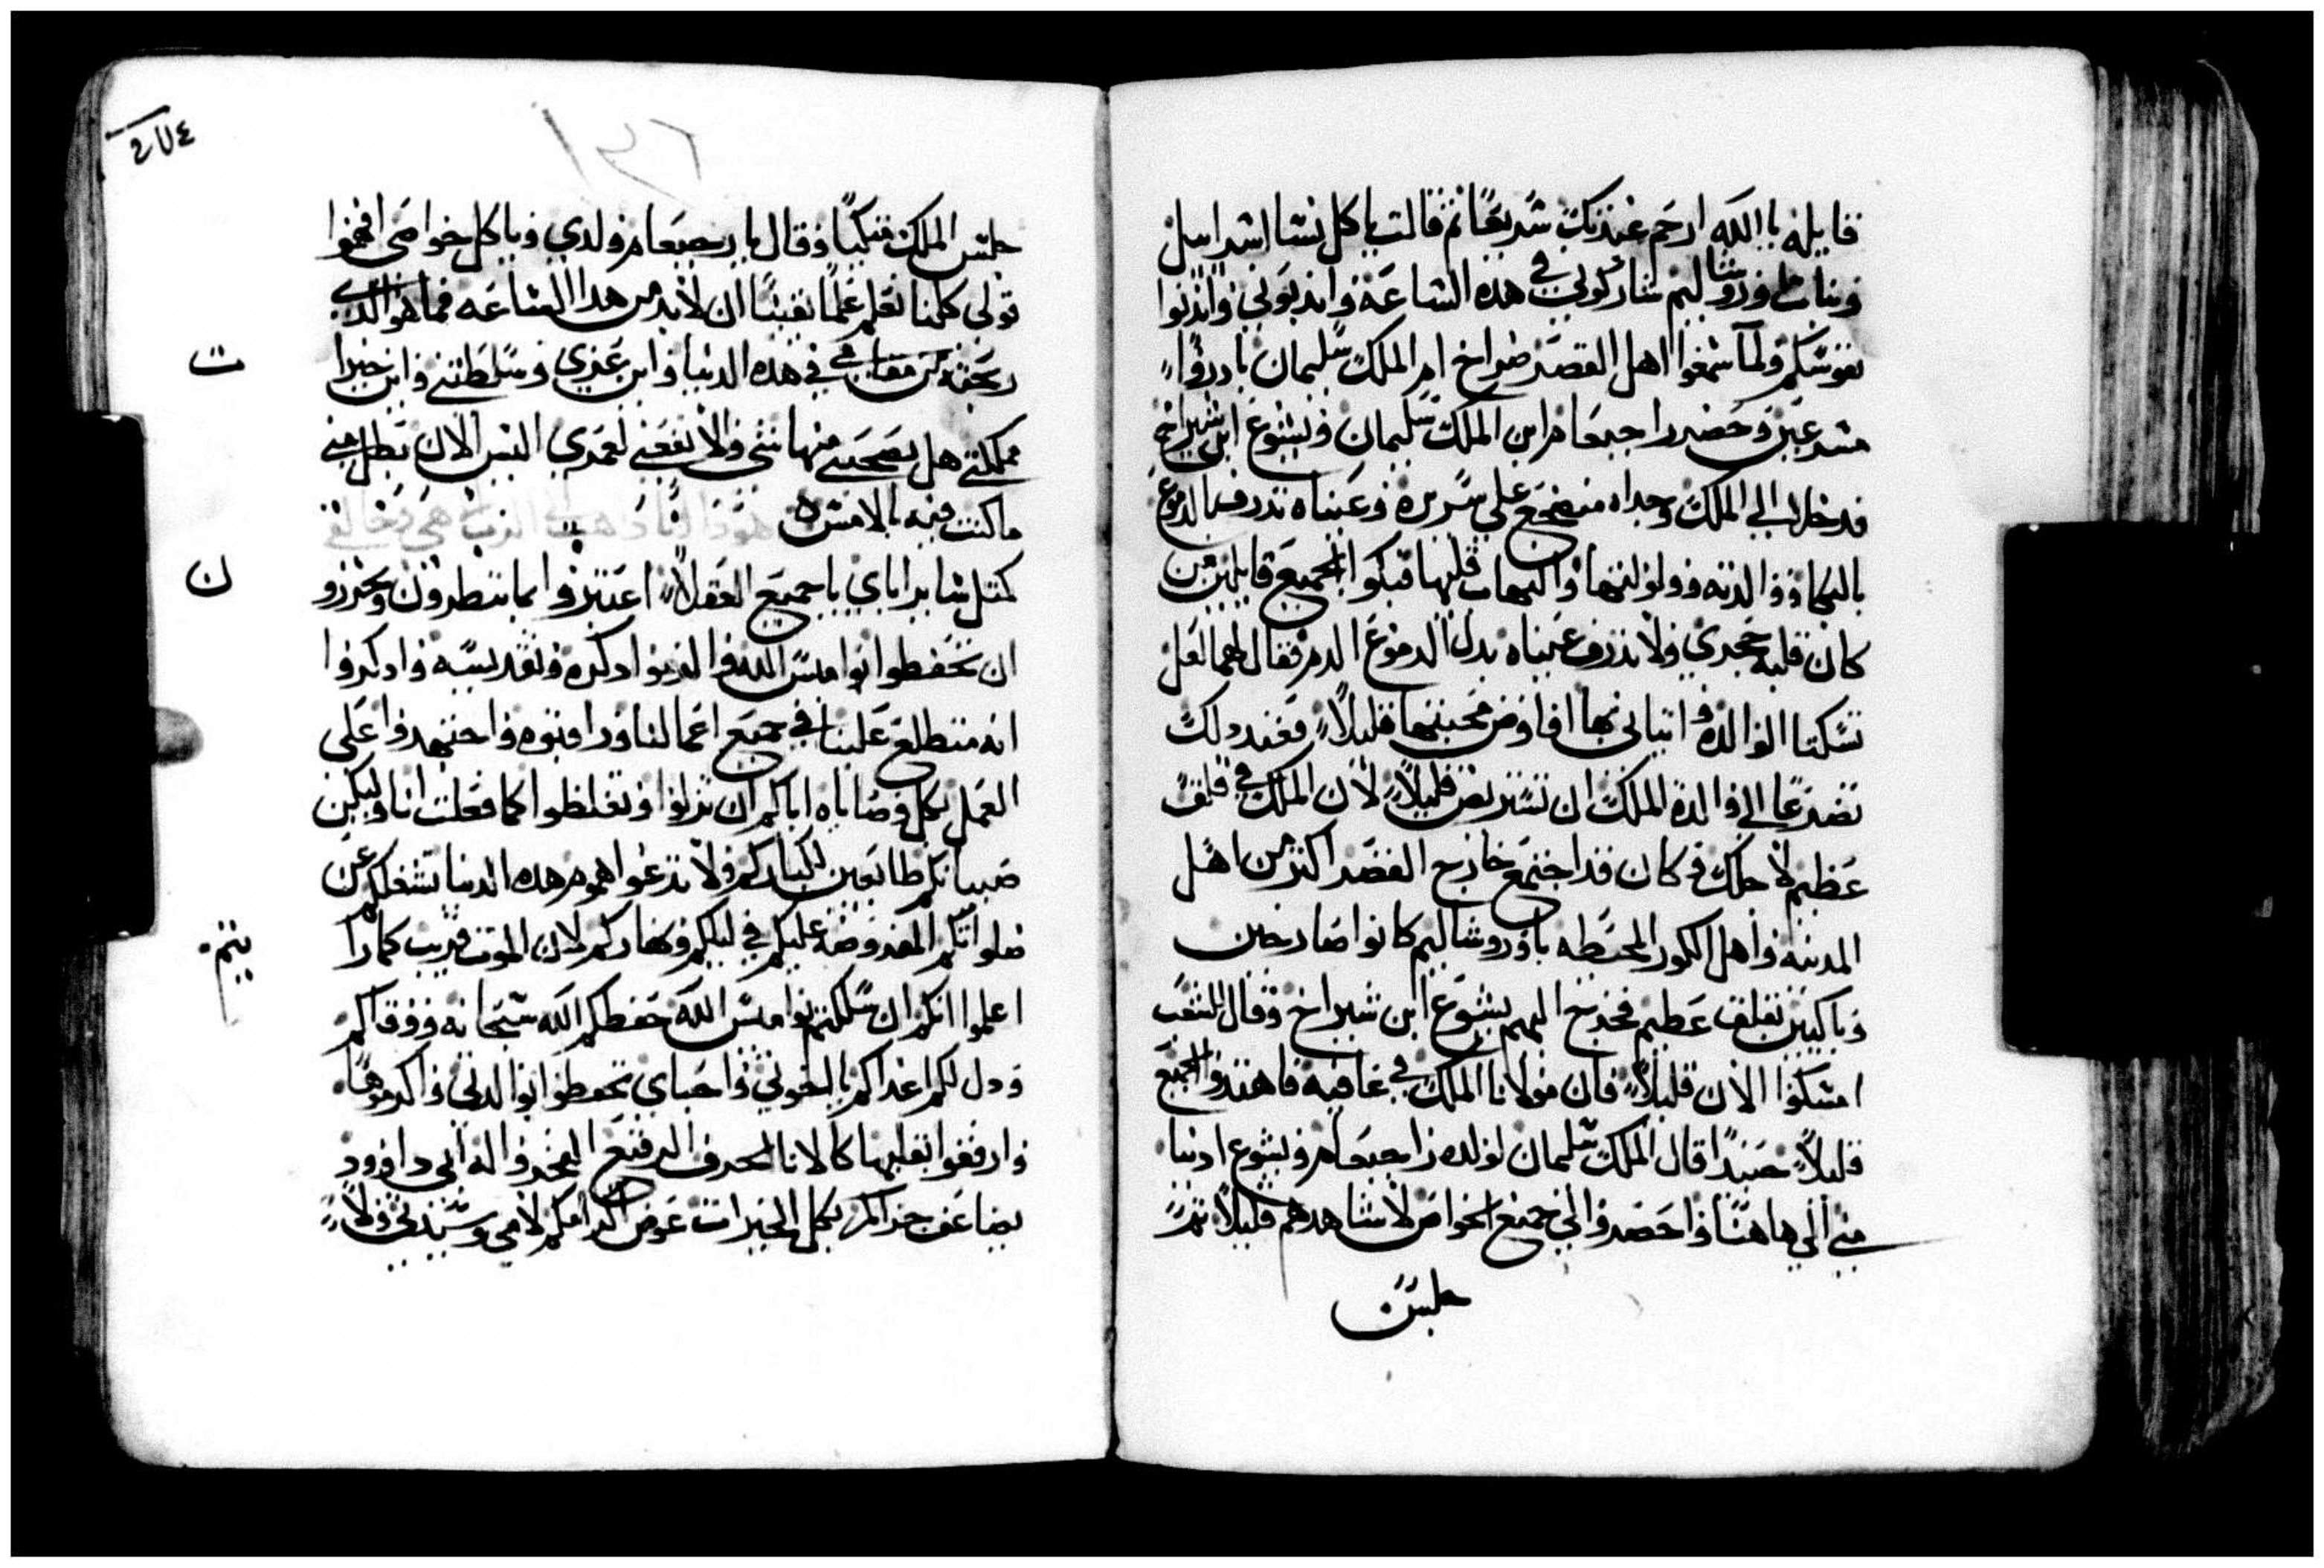 قايله يا الله ارحم عبدتك سريعًا ثم قالت يا كل نسا اسراييل
وبنات اوروشاليم شاركوني في هذه الساعة واندبوني واندبوا
نفوسكم ولما سمعوا اهل القصر صراخ ام الملك سليمان بادروا
مسرعين وحضر راجبعام ابن الملك سليمان ويشوع ابن شيراخ
فدخلا الي الملك وجداه منضجع علي سريره وعيناه تدرف الدموع
بالبكا ووالدته وولولتها والتهاب قلبها فبكوا الجميع قايلين من
كان قلبه حجري ولا تدرف عيناه بدل الدموع الدم فقال لهما لعل
تسكتا الوالدة واتياني بها افاوض محبتها قليلاً فعند دلك
تضرعا الي والدة الملك ان تستريض قليلاً لان الملك في قلق
عظيم لاجلك وكان قد اجتمع خارج القصر اكثر من اهل
المدينه واهل الكور المحيطه باوروشاليم كانوا صارخين
وباكيين بقلق عظيم فخرج اليهم يشوع ابن شيراخ وقال للشعب
امسكوا الان قليلاً فان مولانا الملك في عافيه فاهتدوا الجميع
قليلاً حينيدًا قال الملك سليمان لولده راجبعام ويشوع ادنيا
مني الي هاهنا واحضروا لي جميع الخواص لاشاهدهم قليلاً ثم
جلس
٢٧٤
جلس الملك متكيًا وقال يا رحبعام ولدي ويا كل خواصي افهموا
قولي كلنا نعلم علمًا يقينًا ان لابد من هدا الساعه فما هو الدي
ربحته من مقامي في هذه الدنيا واين عزي وسلطتي واين خيرا
ت
مملكتي هل يصحبني منها شي ولا نفعني لعمري اليس الان بطل مني
ما كنت فيه بالامس هودا انا داهب الي التراب
كمثل ساير اباي يا جميع العقلا اعتبروا بما تنظرون وتحرزو
ن
ان تحفظوا نواميس الله والزموا دكره وتقديسه وادكروا
انه متطلع علينا في جميع اعمالنا وراقبوه واجتهدوا علي
العمل بكل وصاياه اياكم ان تزلوا وتغلظوا كما فعلت انا وليكن
صبيانكم طايعين لكباركم ولا تدعوا هموم هذه الدنيا تشغلكم عن
صلواتكم المفروضة عليكم في ليلكم ونهاركم لان الموت قريب كما را
يتم
اعلموا انكم ان سلكتم نواميس الله حفظكم الله سبحانه ووقاكم
ودل لكم اعداكم يا اخوتي واحباي تحفظوا بوالدتي واكرموها
وارفقوا بقلبها كالانا الخزف الرفيع اليخزوا اله ابي داوود
يضاعف جزاكم بكل الخيرات عوض اكرامكم لامي وسيدتي ولا